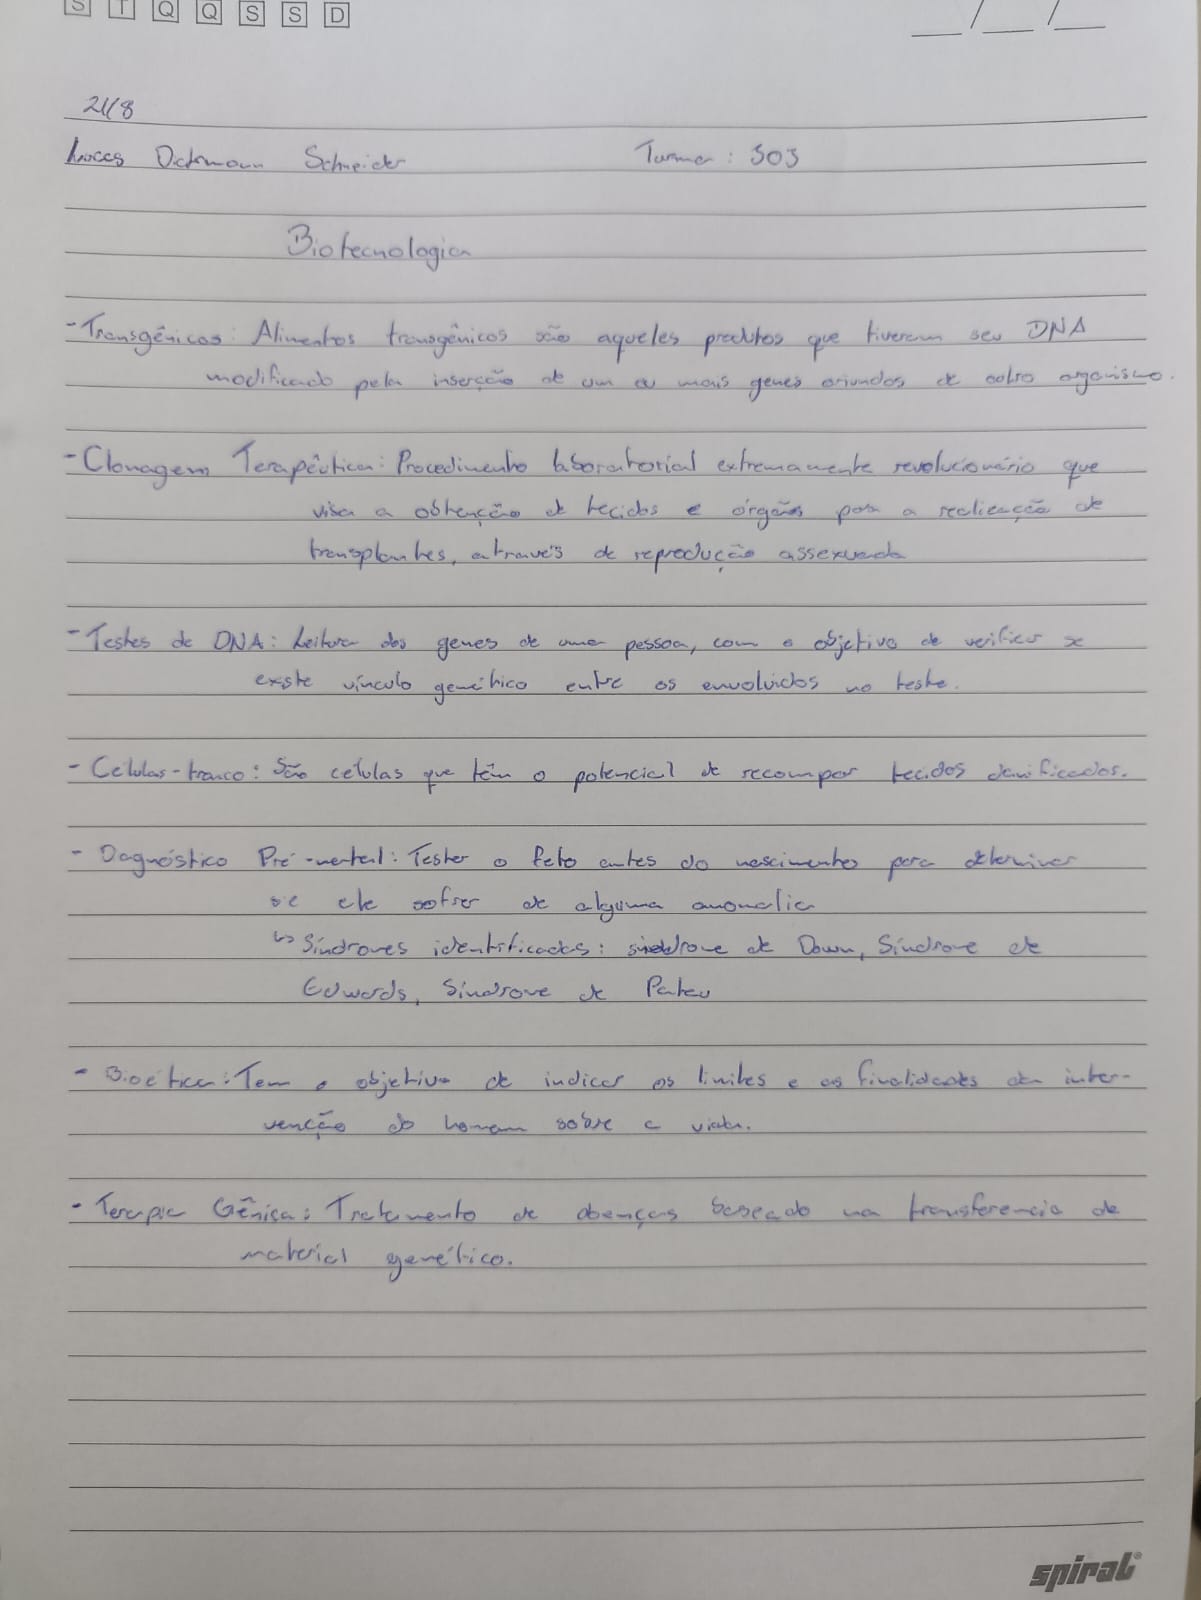 S T Q Q S S D __/__/__
21/8
Lucas Dickmann Schneider Turma: 303
Biotecnologia
- Transgênicos: Alimentos transgênicos são aqueles produtos que tiveram seu DNA
modificado pela inserção de um ou mais genes oriundos de outro organismo.
- Clonagem Terapêutica: Procedimento laboratorial extremamente revolucionário que
visa a obtenção de tecidos e órgãos para a realização de
transplantes, através de reprodução assexuada
- Testes de DNA: Leitura dos genes de uma pessoa, com o objetivo de verificar se
existe vínculo genético entre os envolvidos no teste.
- Células-tronco: São células que têm o potencial de recompor tecidos danificados.
- Diagnóstico Pré-natal: Testar o feto antes do nascimento para determinar
se ele sofrer de alguma anomalia
↳ Síndromes identificadas: síndrome de Down, Síndrome de
Edwards, Síndrome de Patau
- Bioética: Tem o objetivo de indicar os limites e as finalidades da inter-
venção do homem sobre a vida.
- Terapia Gênica: Tratamento de doenças baseado na transferencia de
material genético.
spiral®